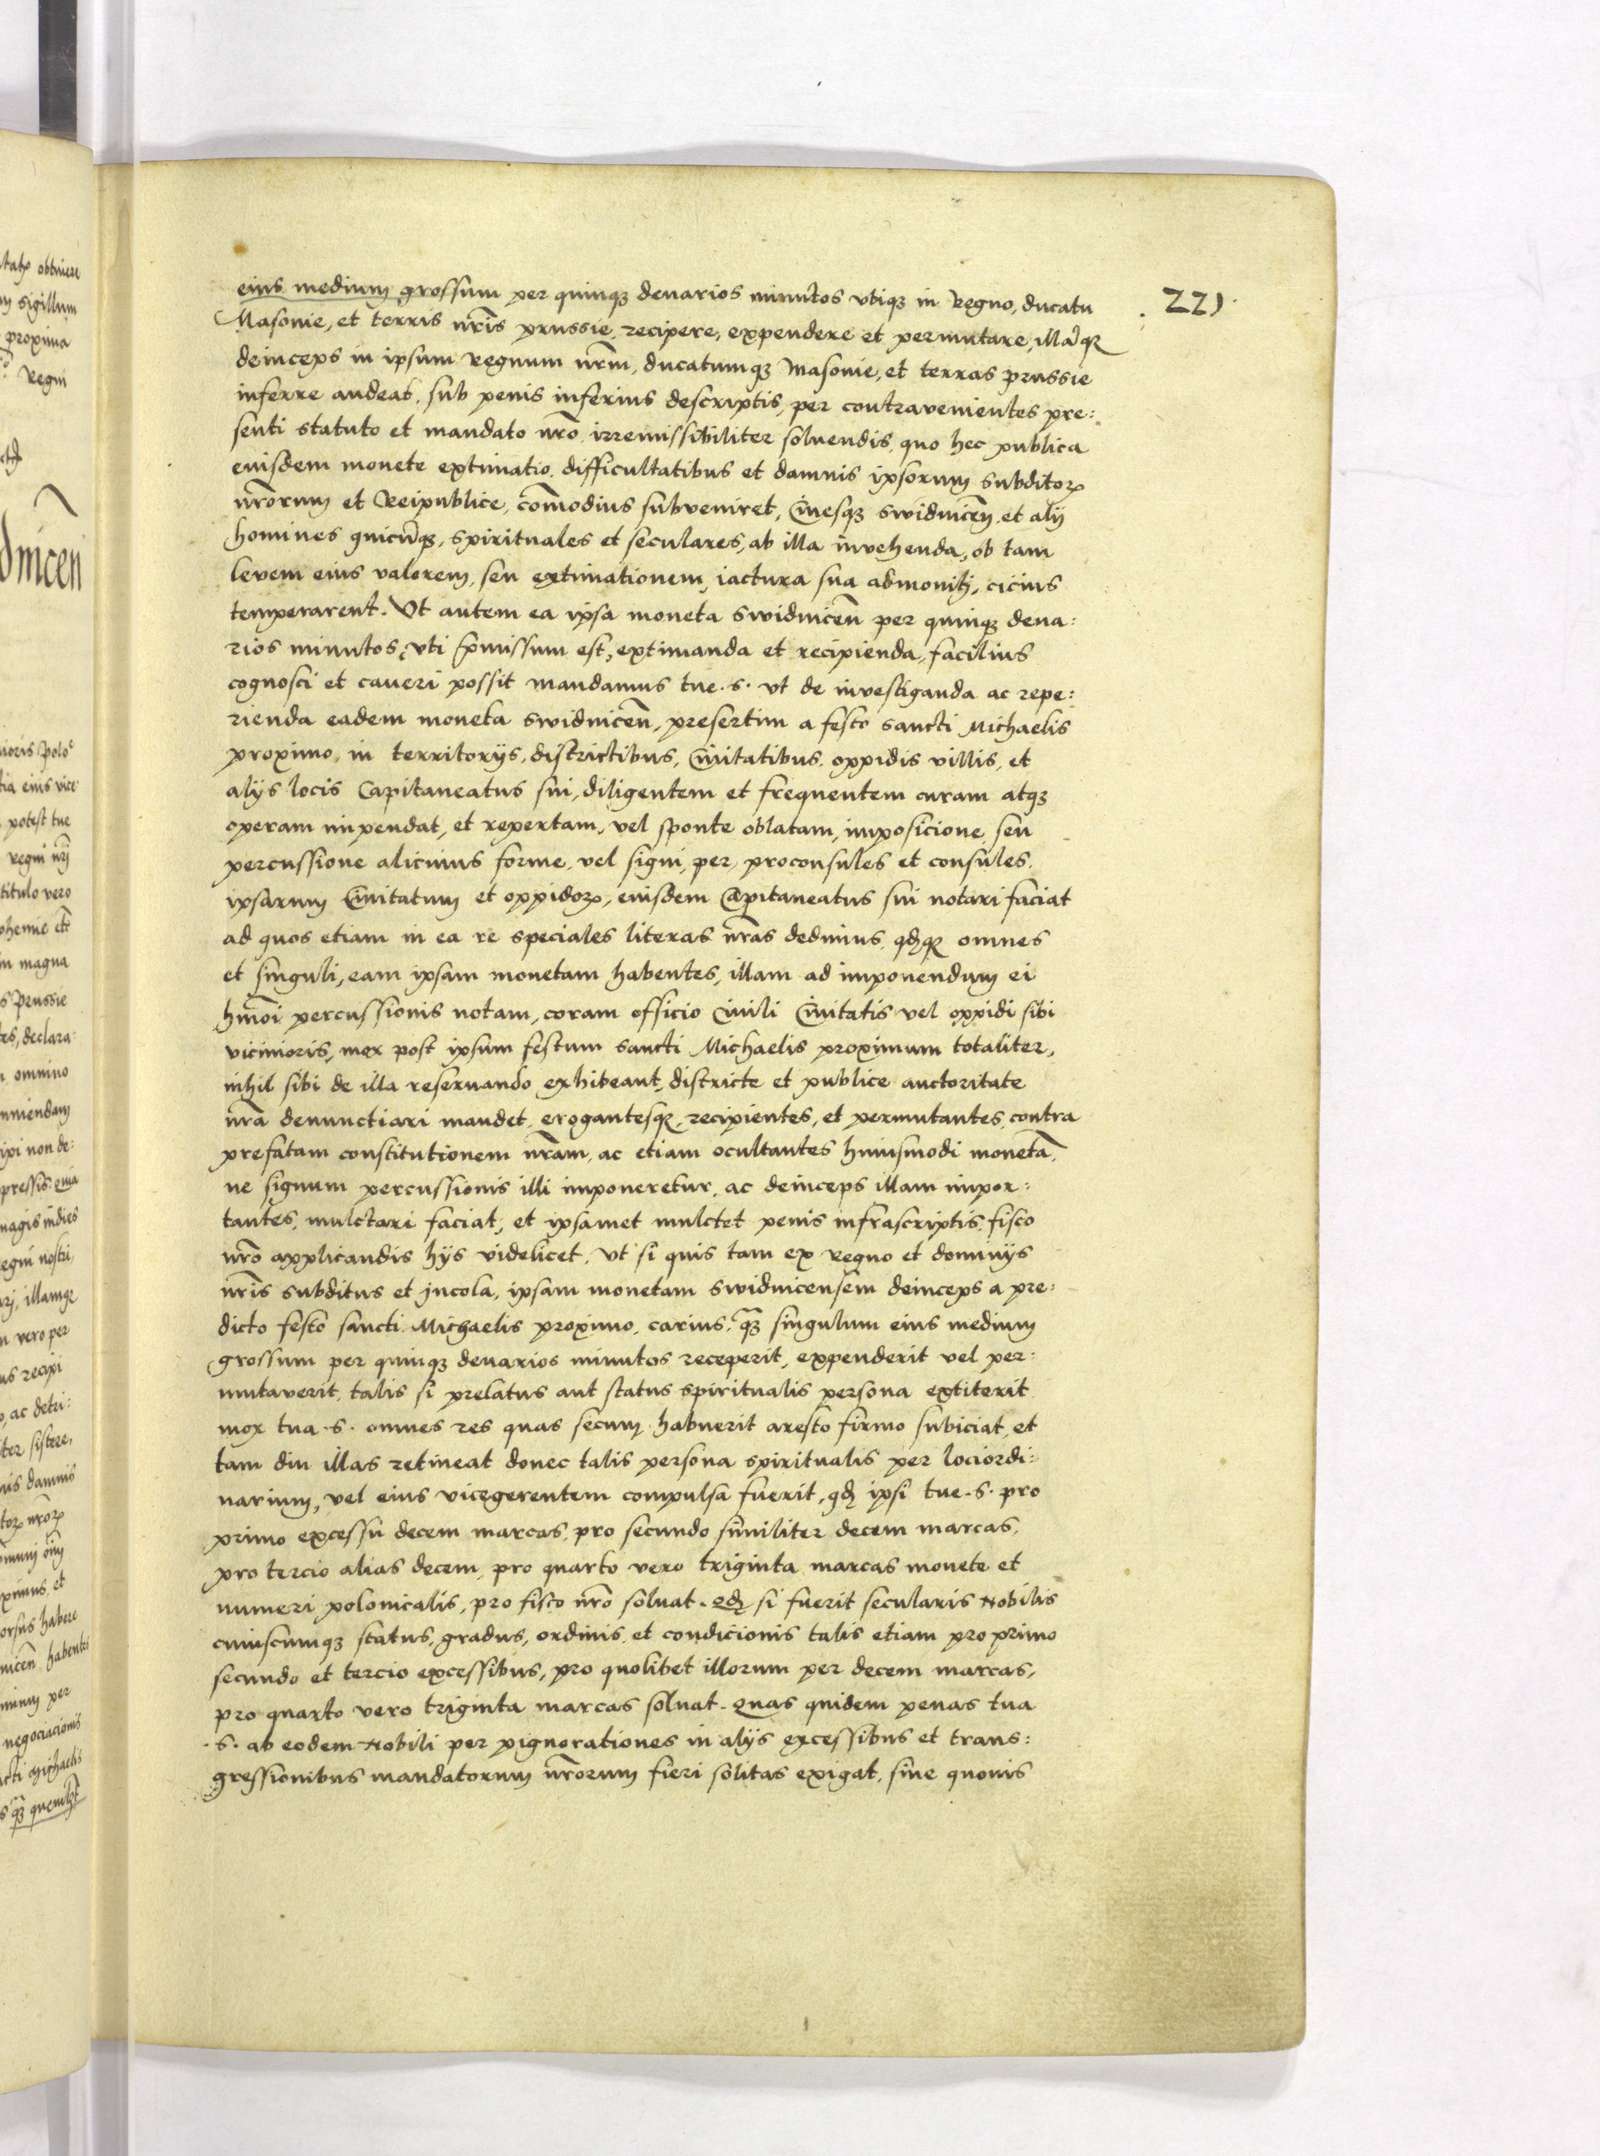 221
eius medium grossum per quinqꝫ denarios minutos vtiqꝫ in Regno, ducatu
Masonie, et terris nr̃is prussie recipere, expendere et permutare, illãqꝫ
deinceps in ipsum regnum nr̃m, ducatumqꝫ Masonie, et terras prussie
inferre audeat, sub penis inferius descriptis, per contravenientes pre:
senti statuto et mandato nr̃o irremissibiliter soluendis, quo hec publica
eiusdem monete extimatio, difficultatibus et damnis ipsorum subditorꝝ
nr̃orum et Reipublice, com̃odius subveniret, Ciuesqꝫ swidnicen̄, et alij
homines quicũqꝫ, spirituales et seculares, ab illa invehenda, ob tam
levem eius valorem, seu extimationem, iactura sua admoniti, cicius
temperarent. Vt autem ea ipsa moneta swidnicen̄ per quinqꝫ dena:
rios minutos, vti p̄missum est, extimanda et recipienda, facilius
cognosci et caueri possit mandamus tue .s. vt de investiganda ac repe:
rienda eadem moneta swidnicen̄, presertim a festo sancti Michaelis
proximo, in territorijs, districtibus, Ciuitatibus, oppidis villis, et
alijs locis Capitaneatus sui, diligentem et frequentem curam atqꝫ
operam impendat, et repertam, vel sponte oblatam, imposicione seu
percussione alicuius forme, vel signi, per proconsules et consules
ipsarum Ciuitatum et oppidorꝝ, eiusdem Capitaneatus sui notari faciat
ad quos etiam in ea re speciales literas nr̃as dedimus, qđqꝫ omnes
et singuli, eam ipsam monetam habentes, illam ad imponendum ei
hm̃oi percussionis notam, coram officio Ciuili Ciuitatis vel oppidi sibi
vicinioris, mox post ipsum festum sancti Michaelis proximum totaliter,
nihil sibi de illa reseruando exhibeant, districte et publice auctoritate
nr̃a denunctiari mandet, erogantesqꝫ, recipientes, et permutantes, contra
prefatam constitutionem nr̃am, ac etiam ocultantes huiusmodi monetã,
ne signum percussionis illi imponeretur, ac deinceps illam impor:
tantes, mulctari faciat, et ipsamet mulctet penis infrascriptis, fisco
nr̃o applicandis hijs videlicet, Vt si quis tam ex regno et dominijs
nr̃is subditus et jncola, ipsam monetam swidnicensem deinceps a pre:
dicto festo sancti Michaelis proximo, carius, q̃ꝫ singulum eius medium
grossum per quinqꝫ denarios minutos receperit, expenderit vel per:
mutaverit, talis si prelatus aut status spiritualis persona extiterit
mox tua .s. omnes res quas secum habuerit aresto firmo subiciat, et
tam diu illas retineat donec talis persona spiritualis per lociordi:
narium, vel eius vicegerentem compulsa fuerit, qđ ipsi tue .s. pro
primo excessu decem marcas, pro secundo similiter decem marcas,
pro tercio alias decem, pro quarto vero triginta marcas monete et
numeri polonicalis, pro fisco nr̃o soluat. Qđ si fuerit secularis Nobilis
cuiuscumqꝫ status, gradus, ordinis, et condicionis talis etiam pro primo
secundo et tercio excessibus, pro quolibet illorum per decem marcas,
pro quarto vero triginta marcas soluat. Quas quidem penas tua
.s. ab eodem Nobili per pignorationes in alijs excessibus et trans:
gressionibus mandatorum nr̃orum fieri solitas exigat, sine quouis